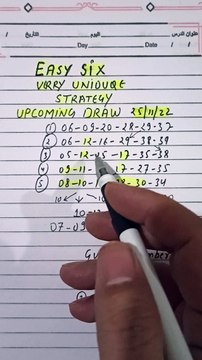 عنوان الدرس
التاريخ
اليوم
EASY SIX
VERY UNIDUQE
STRATEGY
UPCOMING DRAW 25/11/22
① 06-09-20-28-29-37
② 06-12-16-29-38-39
③ 05-12-15-17-35-38
④ 09-11- 17-27-35
⑤ 08-10- -30-34
10
10-12
07-09